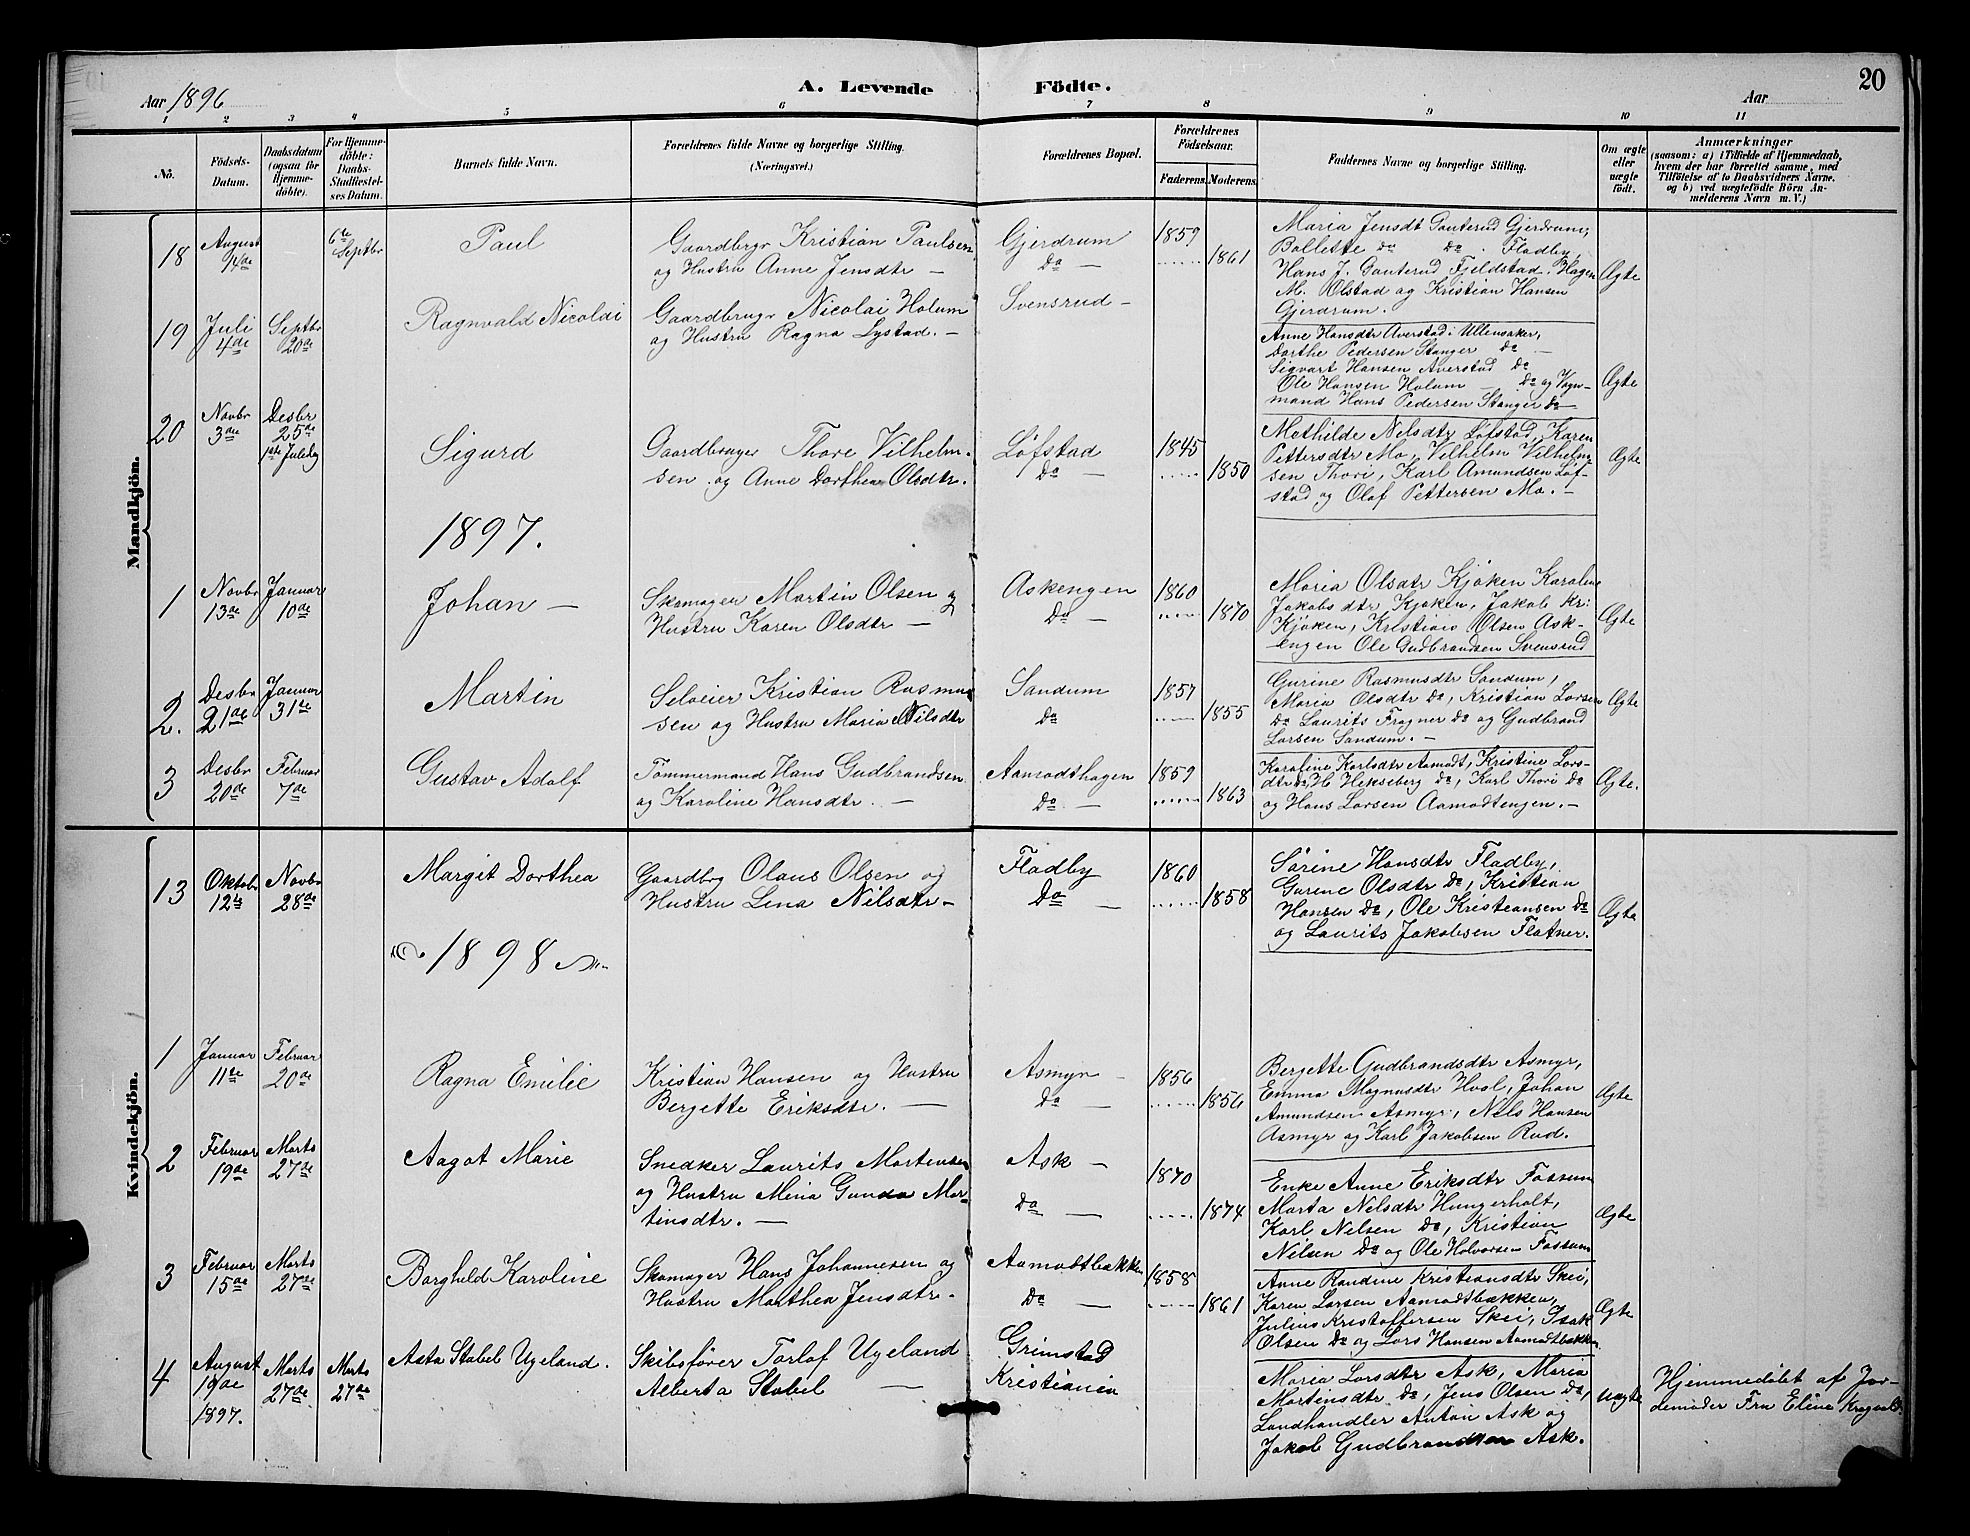 Aar 1896
A. Levende Födte.
Aar
20
1 2 3 4 5 6 7 8 9 10 11
No.
Födsels-
Datum.
Daabsdatum
(ogsaa for
Hjemme-
döbte).
For Hjemme-
döbte:
Daabs-
Stadfæstel-
ses Datum.
Barnets fulde Navn.
Forældrenes fulde Navne og borgerlige Stilling.
(Næringsvei.)
Forældrenes Bopæl.
Forældrenes
Födselsaar.
Faderens.
Moderens.
Faddernes Navne og borgerlige Stilling.
Om ægte
eller
uægte
födt.
Anmærkninger
(saasom: a) i Tilfælde af Hjemmedaab,
hvem der har forrettet samme, med
Tilföielse af to Daabsvidners Navne.
og b) ved uægtefödte Börn An-
melderens Navn m. V.)
Mandkjön.
18
August
14de
6te
Septbr
Paul
Gaardbrgr Kristian Paulsen
og Hustru Anne Jensdtr —
Gjerdrum
Do —
1859
1861
Maria Jensdt Gauterud Gjerdrum,
Bollette Do Do. Fladby,
Hans J. Gauterud Fjeldstad. Hagen
M. Olstad og Kristian Hansen
Gjerdrum.
Ægte
19
Juli
4de
Septbr
20de
Ragnvald Nicolai
Gaardbrugr Nicolai Holum
og Hustru Ragna Lystad. —
Svensrud —
Anne Hansdtr Averstad i Ullensaker,
Dorthe Pedersen Stanger Do —
Sigvart Hansen Averstad Do
Ole Hansen Holum — Do og Vogn-
mand Hans Pedersen Stanger Do
Ægte
20
Novbr
3die
Desbr
25de
1ste Juledg
Sigurd
Gaardbruger Thore Vilhelm-
sen og Anne Dorthea Olsdtr.
Løfstad
Do —
1845
1850
Mathilde Nelsdtr Løfstad, Karen
Pettersdtr Mo, Vilhelm Vilhelm-
sen Thori, Karl Amundsen Løf-
stad og Olaf Pettersen Mo. —
Ægte
1897.
1
Novbr
13de
Januar
10de
Johan —
Skomager Martin Olsen og
Hustru Karen Olsdtr —
Askengen
Do —
1860
1870
Maria Olsdtr Kjøken Karoline
Jakobsdtr Kjøken, Jakob Kr:
Kjøken, Kristian Olsen Ask-
engen Ole Gudbrandsen Svensrud
Ægte
2.
Desbr
21de
Januar
31te
Martin
Seloeier Kristian Rasmus
sen og Hustru Maria Nilsdtr
Sandum
Do —
1857
1855
Gurine Rasmusdtr Sandum,
Maria Olsdtr Do, Kristian Larsen
Do Laurits Fragner Do og Gudbrand
Larsen Sandum. —
Ægte
3
Desbr
20de
Februar
7de
Gustav Adolf
Tømmermand Hans Gudbrandsen
og Karoline Hansdtr. —
Aamodthagen
Do —
1859
1863
Karoline Karlsdtr Aamodt, Kristine Lars-
dtr Do, H. Hekseberg Do, Karl Thori Do
og Hans Larsen Aamodtengen. —
Ægte.
Kvindekjön.
13
Oktobr
12te
Novbr
28de
Margit Dorthea
Gaardbrg Olaus Olsen og
Hustru Lina Nilsdtr —
Fladby
Do —
1860
1858
Sørine Hansdtr Fladby,
Gurine Olsdtr Do, Kristian
Hansen Do, Ole Kristiansen Do
og Laurits Jakobsen Flatner.
Ægte
1898
1
Januar
11te
Februar
20de
Ragna Emilie
Kristian Hansen og Hustru
Bergette Eriksdtr. —
Asmyr —
Do —
1856
1856
Bergette Gudbrandsdtr Asmyr,
Emma Magnusdtr Hvol, Johan
Amundsen Asmyr, Nils Hansen
Asmyr og Karl Jakobsen Rud.
Ægte
2
Februar
19de
Marts
27de
Aagot Marie
Snedker Laurits Mortensen
og Hustru Mina Gunda Mar-
tinsdtr. —
Ask —
Do —
1870
1874
Enke Anne Eriksdtr Fossum
Marta Nelsdtr Hungerholt,
Karl Nelsen Do, Kristian
Nilsen Do og Ole Halvorsen Fossum
Ægte
3
Februar
15de
Marts
27de
Borghild Karoline
Skomager Hans Johannesen og
Hustru Marthea Jensdtr.
Aamodtbakken
Do —
1858
1861
Anne Randine Kristiansdtr Skei,
Karen Larsen Aamodtbækken,
Julius Kristoffersen Skei, Isak
Olsen Do og Lars Hansen Aamodtbakken
Ægte
4
August
19de
1897.
Marts
27de
Marts
27de
Asta Stabel Ugeland.
Skibsfører Torlof Ugeland
Alberta Stabel —
Grimstad
Kristiania
Maria Larsdtr Ask, Maria
Martinsdtr Do, Jens Olsen Do,
Landhandler Anton Ask og
Jakob Gudbrandsen Ask.
uægte
Hjemmedøbt af Jor-
demoder Fru Eline